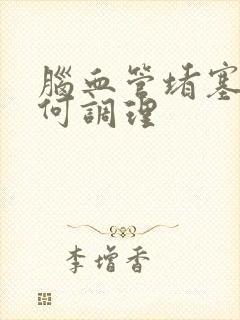 腦血管堵塞
何調理
李增香